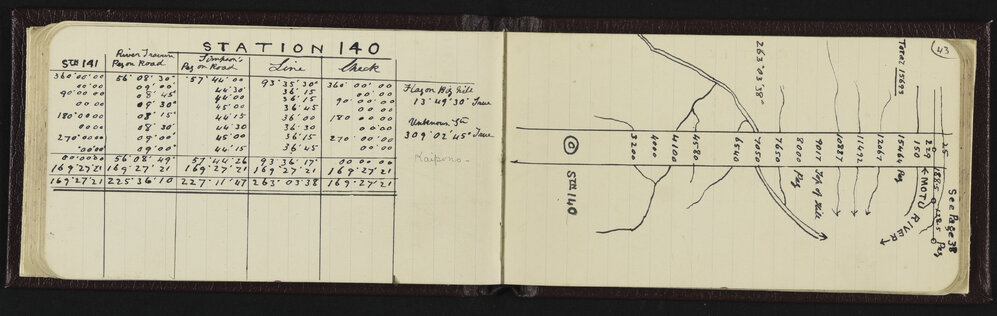 STATION 140
STN 141 River Traverse Peg on Road Simpson's Peg on Road Line Check
360°00'00 56°08'30" 57°44'00 93°35'30" 360°00'00
00'00 09'00 44'30 36'15 00'00
90°00'00 08'45" 44'00 36'15 90°00'00
00'00 09'30" 45'00 36'45 00'00
180°00'00 08'15" 44'15 36'00 180°00'00
00'00 08'30" 44'30 36'30 00'00
270°00'00 08'00" 45'00 36'15 270°00'00
00'00 09'00" 44'15 36'45 00'00
00°00'00 56°08'49" 57°44'26 93°36'17" 00°00'00
169°27'21 169°27'21 169°27'21 169°27'21 169°27'21
169°27'21 225°36'10 227°11'47 263°03'38 169°27'21
Flag on Big Hill
13°49'30" True
Unknown Stn
309°02'45" True
Kaipono
43
Total 15693
263°03'38"
O
STN 140
3200
4000
4100
4580
6540
7050
7650
8000 Peg
9017 Top of Hill
10887
11492
12067
15464 Peg
150
229
25
1885
1425 Peg
MOTU RIVER
See Page 38